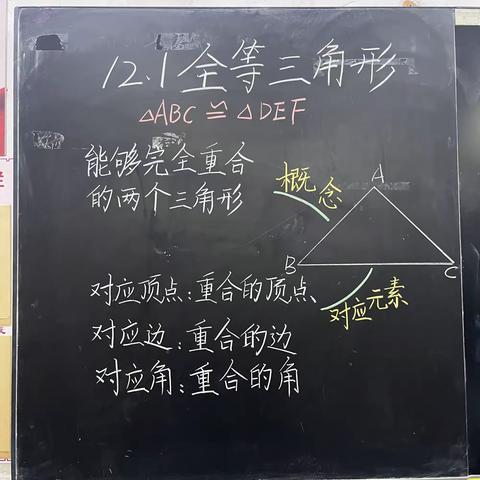 12.1全等三角形
△ABC≌△DEF
能够完全重合
的两个三角形
概念
A
B
C
对应顶点:重合的顶点
对应元素
对应边:重合的边
对应角:重合的角